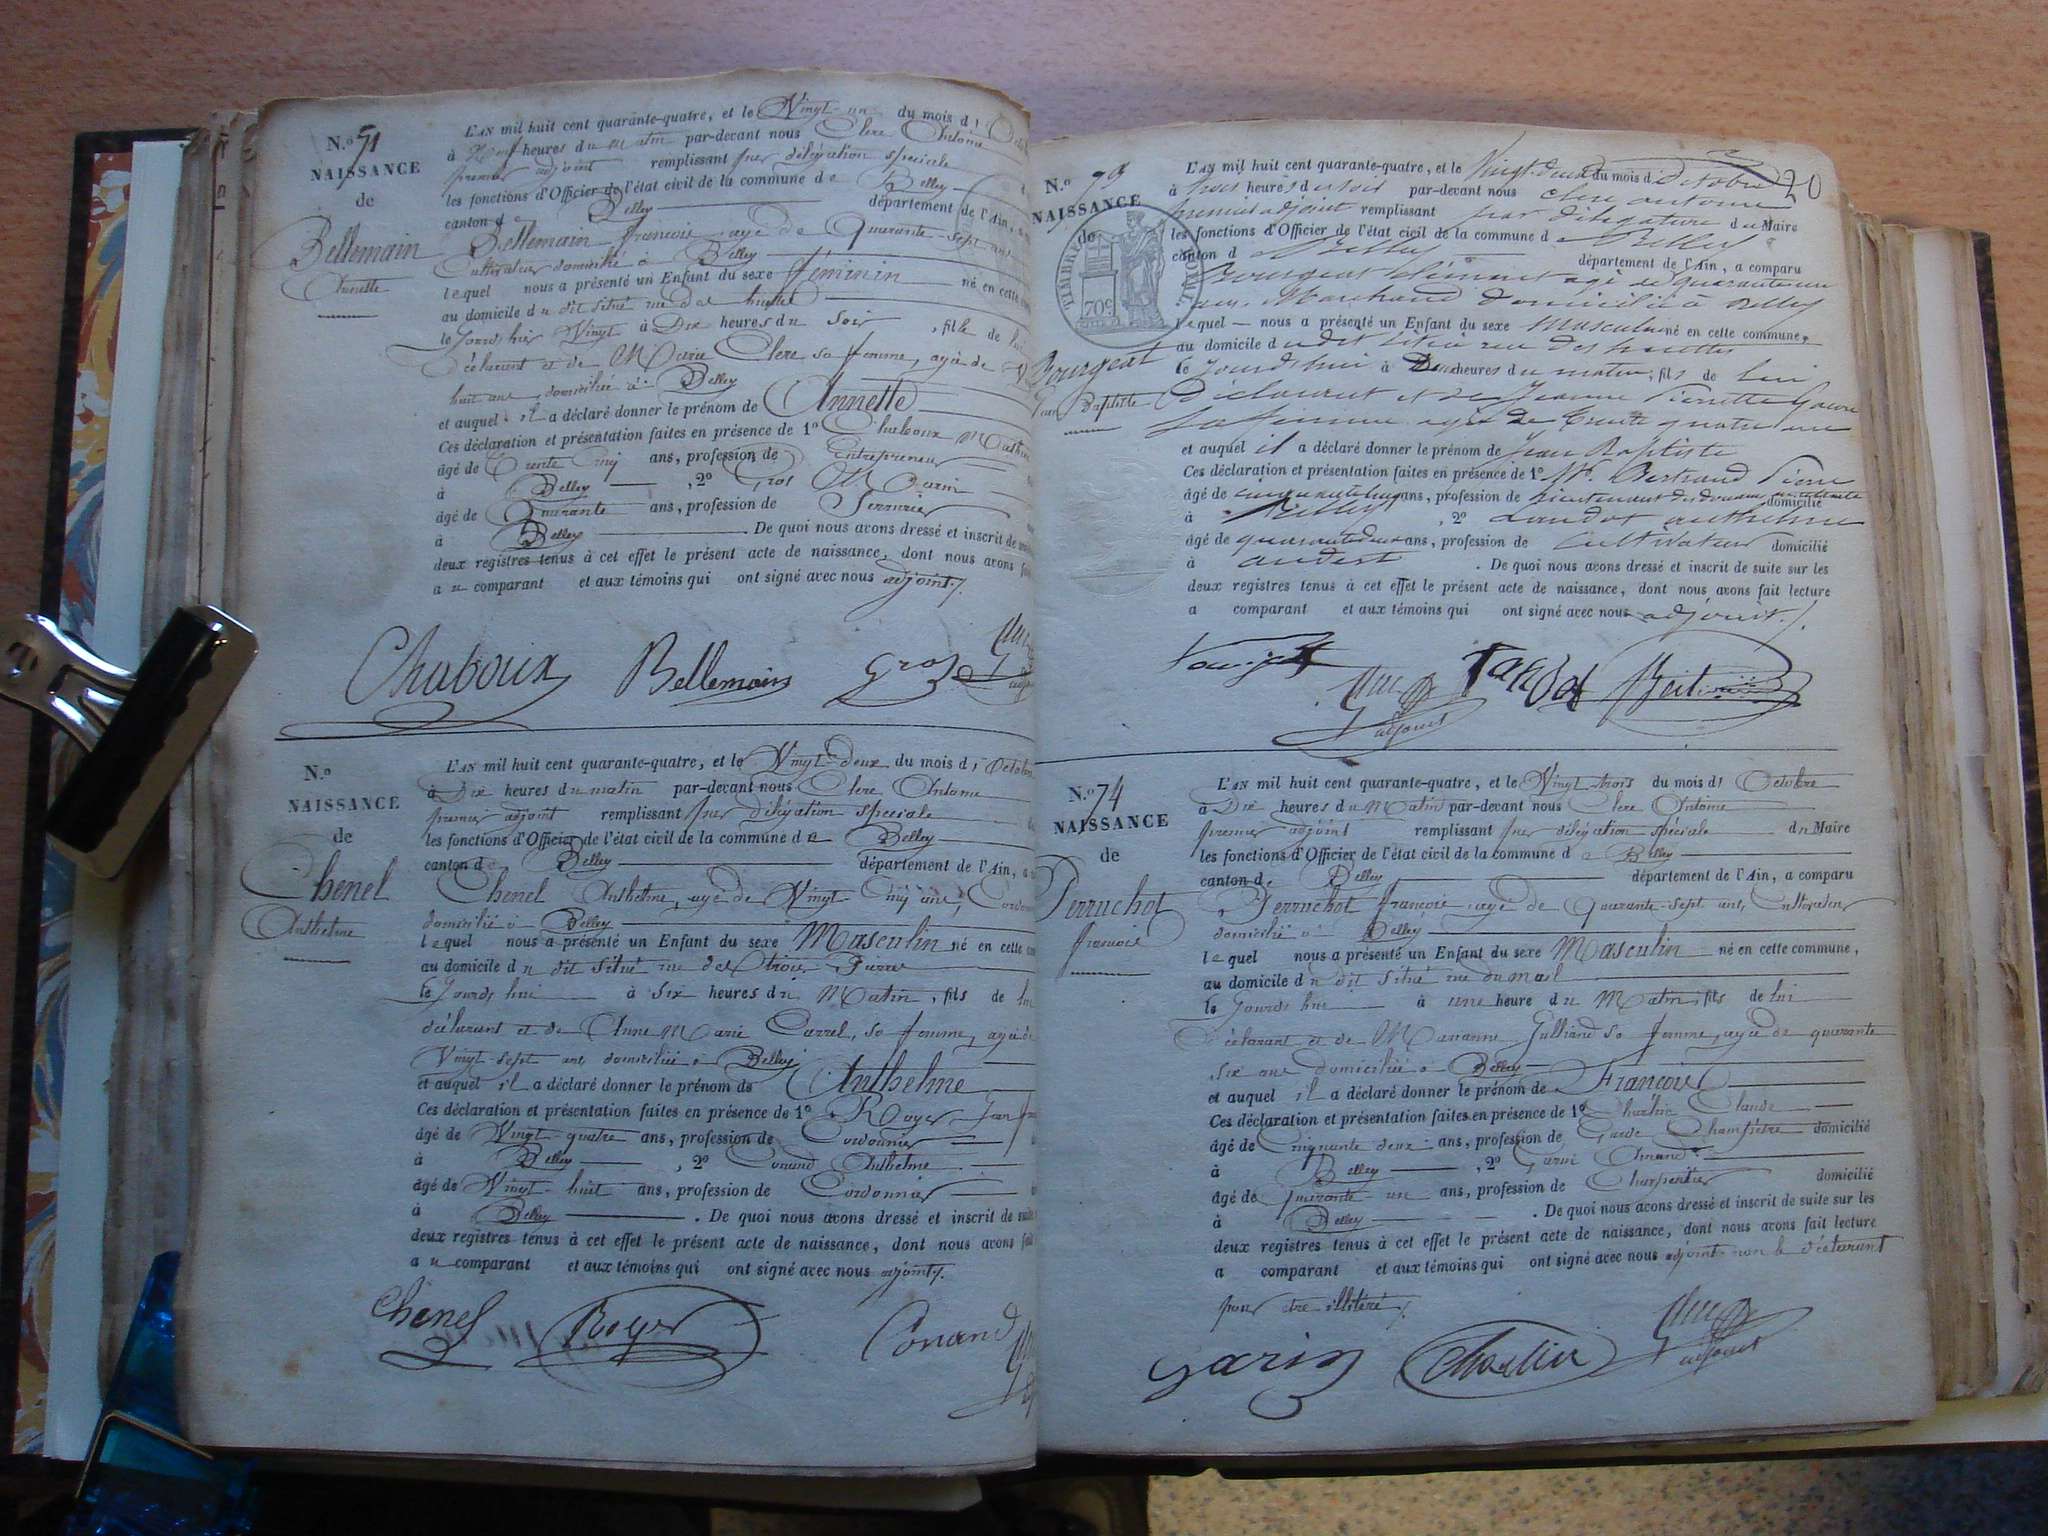 N.º 71
NAISSANCE
de
Bellemain
Annette
L'AN mil huit cent quarante-quatre, et le Vingt-un du mois d'
à heures du matin par-devant nous Clerc Antoine
premier adjoint remplissant par délégation speciale
les fonctions d'Officier de l'état civil de la commune de Belley
canton de Belley département de l'Ain,
Bellemain françois, agé de Quarante-Sept ans
Cultivateur domicilié à Belley
lequel nous a présenté un Enfant du sexe féminin né en cette
au domicile du dit situé rue des
le Jourd'hier Vingt à Dix heures du Soir, fille de lui
déclarant et de Marie Clerc sa femme, agée de
huit ans, domiciliée à Belley
et auquel il a déclaré donner le prénom de Annette
Ces déclaration et présentation faites en présence de 1º Chaboux
âgé de Trente Cinq ans, profession de Entrepreneur
à Belley, 2º Gros Marin
âgé de Quarante ans, profession de Serrurier
à Belley. De quoi nous avons dressé et inscrit de
deux registres tenus à cet effet le présent acte de naissance, dont nous avons
au comparant et aux témoins qui ont signé avec nous adjoint ./.
Chaboux Bellemain Gros
N.º
NAISSANCE
de
Chenel
Anthelme
L'AN mil huit cent quarante-quatre, et le Vingt-deux du mois d'Octobre
à Dix heures du matin par-devant nous Clerc Antoine
premier adjoint remplissant par délégation speciale
les fonctions d'Officier de l'état civil de la commune de Belley
canton de Belley département de l'Ain,
Chenel Anthelme, agé de Vingt Cinq ans,
domicilié à Belley
lequel nous a présenté un Enfant du sexe Masculin né en cette
au domicile du dit situé rue des trois Pierre
le Jourd'hui à Six heures du Matin, fils de lui
déclarant et de Anne Marie Carrel, sa femme, agée de
Vingt-sept ans domiciliée à Belley
et auquel il a déclaré donner le prénom de Anthelme
Ces déclaration et présentation faites en présence de 1º Royer Jean
âgé de Vingt-quatre ans, profession de Cordonnier
à Belley, 2º Conand Anthelme
âgé de Vingt-huit ans, profession de Cordonnier
à Belley. De quoi nous avons dressé et inscrit de
deux registres tenus à cet effet le présent acte de naissance, dont nous avons
au comparant et aux témoins qui ont signé avec nous adjoint ./.
Chenel Royer Conand
20
N.º 73
NAISSANCE
de
TIMBRE ROYAL.
70c
Bourgeat
Jean Baptiste
L'AN mil huit cent quarante-quatre, et le Vingt-deux du mois d'Octobre
à trois heures du soir par-devant nous clerc antoine
premier adjoint remplissant par délégation du Maire
les fonctions d'Officier de l'état civil de la commune de Belley
canton d Belley département de l'Ain, a comparu
Bourgeat clément agé de quarante un
ans, Marchand domicilié à Belley
lequel nous a présenté un Enfant du sexe Masculin né en cette commune,
au domicile du dit situé rue des
le Jourd'hui à Deux heures du matin, fils de lui
Déclarant et de Jeanne Pierrette
Sa femme agée de trente quatre ans
et auquel il a déclaré donner le prénom de Jean Baptiste
Ces déclaration et présentation faites en présence de 1º Mr. Bertrand Pierre
âgé de ans, profession de domicilié
à Belley, 2º Landot anthelme
âgé de quarante deux ans, profession de Cultivateur domicilié
à audit. De quoi nous avons dressé et inscrit de suite sur les
deux registres tenus à cet effet le présent acte de naissance, dont nous avons fait lecture
a comparant et aux témoins qui ont signé avec nous adjoint ./.
adjoint
N.º 74
NAISSANCE
de
Perruchot
françois
L'AN mil huit cent quarante-quatre, et le Vingt trois du mois d'Octobre
à Dix heures du Matin par-devant nous Clerc Antoine
premier adjoint remplissant par délégation spéciale du Maire
les fonctions d'Officier de l'état civil de la commune de Belley
canton de Belley département de l'Ain, a comparu
Perruchot françois, agé de Quarante-sept ans, Cultivateur
domicilié à Belley
lequel nous a présenté un Enfant du sexe Masculin né en cette commune,
au domicile du dit situé rue du mail
le Jourd'hui à une heure du Matin, fils de lui
Déclarant et de Marianne Julliand sa femme, agée de quarante
six ans domiciliée à Belley
et auquel il a déclaré donner le prénom de François
Ces déclaration et présentation faites en présence de 1º Claude
âgé de Cinquante deux ans, profession de Garde Champêtre domicilié
à Belley, 2º Garin
âgé de Quarante un ans, profession de Charpentier domicilié
à Belley. De quoi nous avons dressé et inscrit de suite sur les
deux registres tenus à cet effet le présent acte de naissance, dont nous avons fait lecture
a comparant et aux témoins qui ont signé avec nous adjoint non le déclarant
pour être illitéré ./.
garin
adjoint